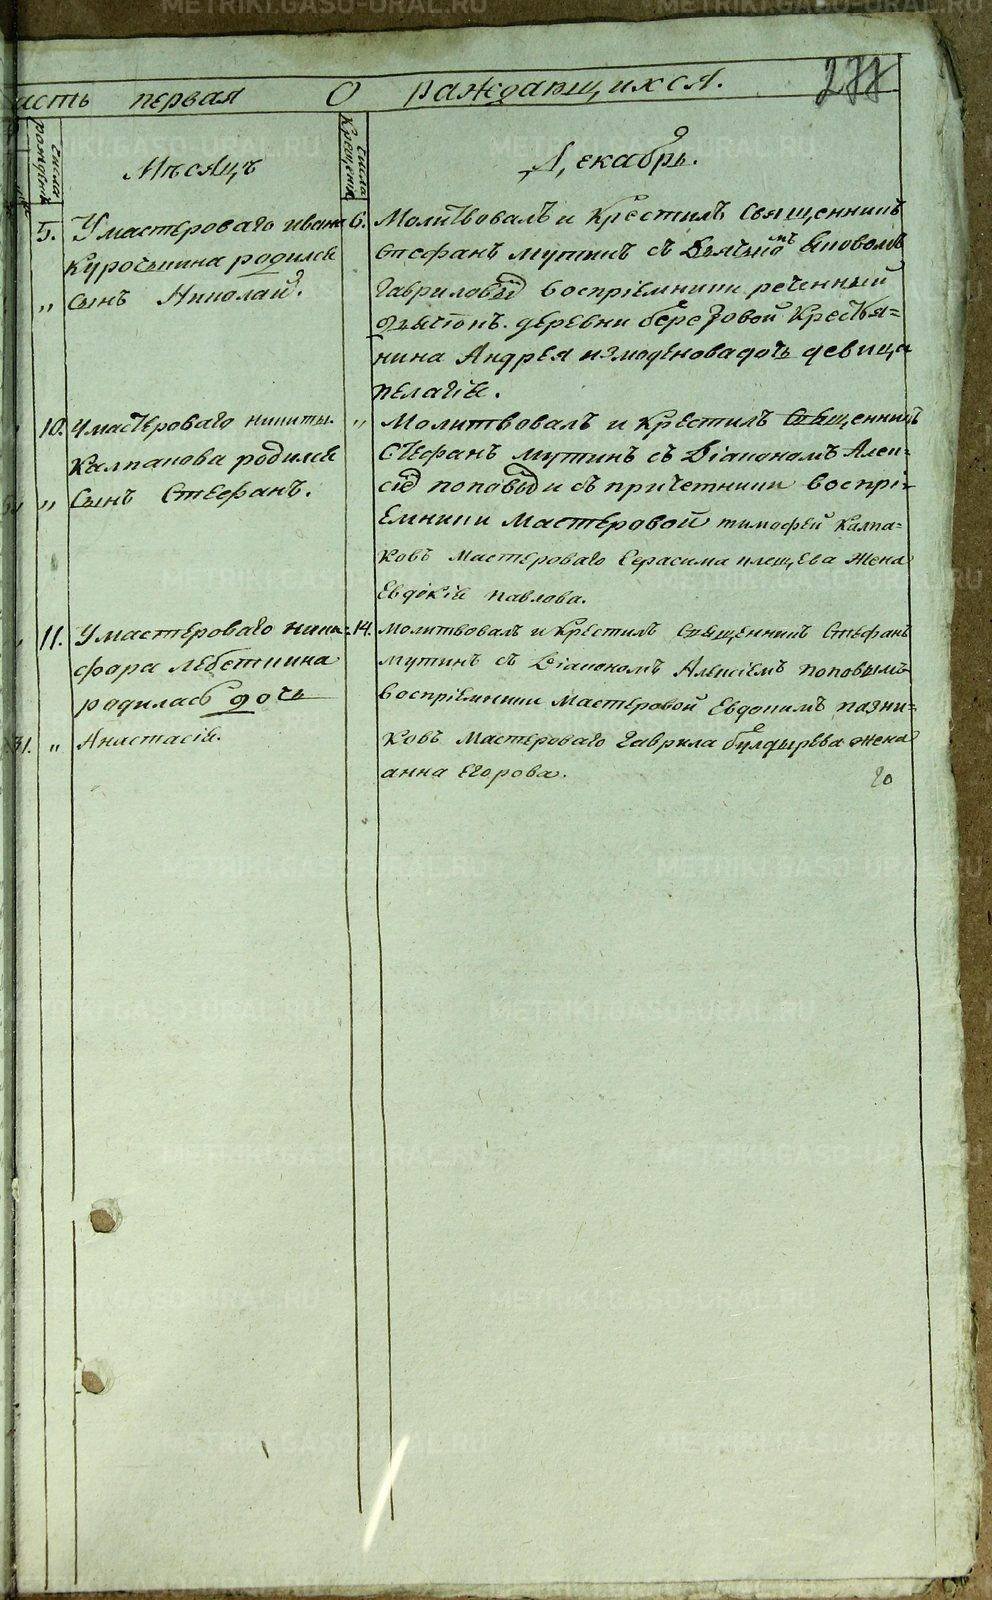 исть первая О раждающихся. 277
Числа рождения
Мѣсяцъ
Числа Крещения
Декабрь.
5. У мастероваго ивана
Курочькина родился
„ сынъ Николай.
6. Молитвовалъ и Крестилъ Священникъ
Стефанъ мутинъ съ Дьячькомъ Яковомъ
Гавриловымъ воспрiемники реченный
дьячокъ. деревни березовой Крестья=
нина Андрея измоденова дочь девица
пелагiя.
10. У мастероваго никиты
Калпакова родился
„ Сынъ Стефанъ.
„ Молитвовалъ и Крестилъ Священникъ
Стефанъ мутинъ съ Дiакономъ Алек=
сiемъ поповымъ и съ причетники воспрi=
емники мастеровой тимофей Калпа=
ковъ мастероваго Герасима плещева жена
Евдокiя павлова.
11. У мастероваго ники=
фора лебеткина
родилась дочь
31. „ Анастасiя.
14. Молитвовалъ и Крестилъ Священникъ Стефанъ
мутинъ съ Дiакономъ Алексiемъ поповымъ
воспрiемники мастеровой Евдокимъ пазни=
ковъ мастероваго Гаврила булдырева жена
анна Егорова.
20
METRIKI.GASO-URAL.RU